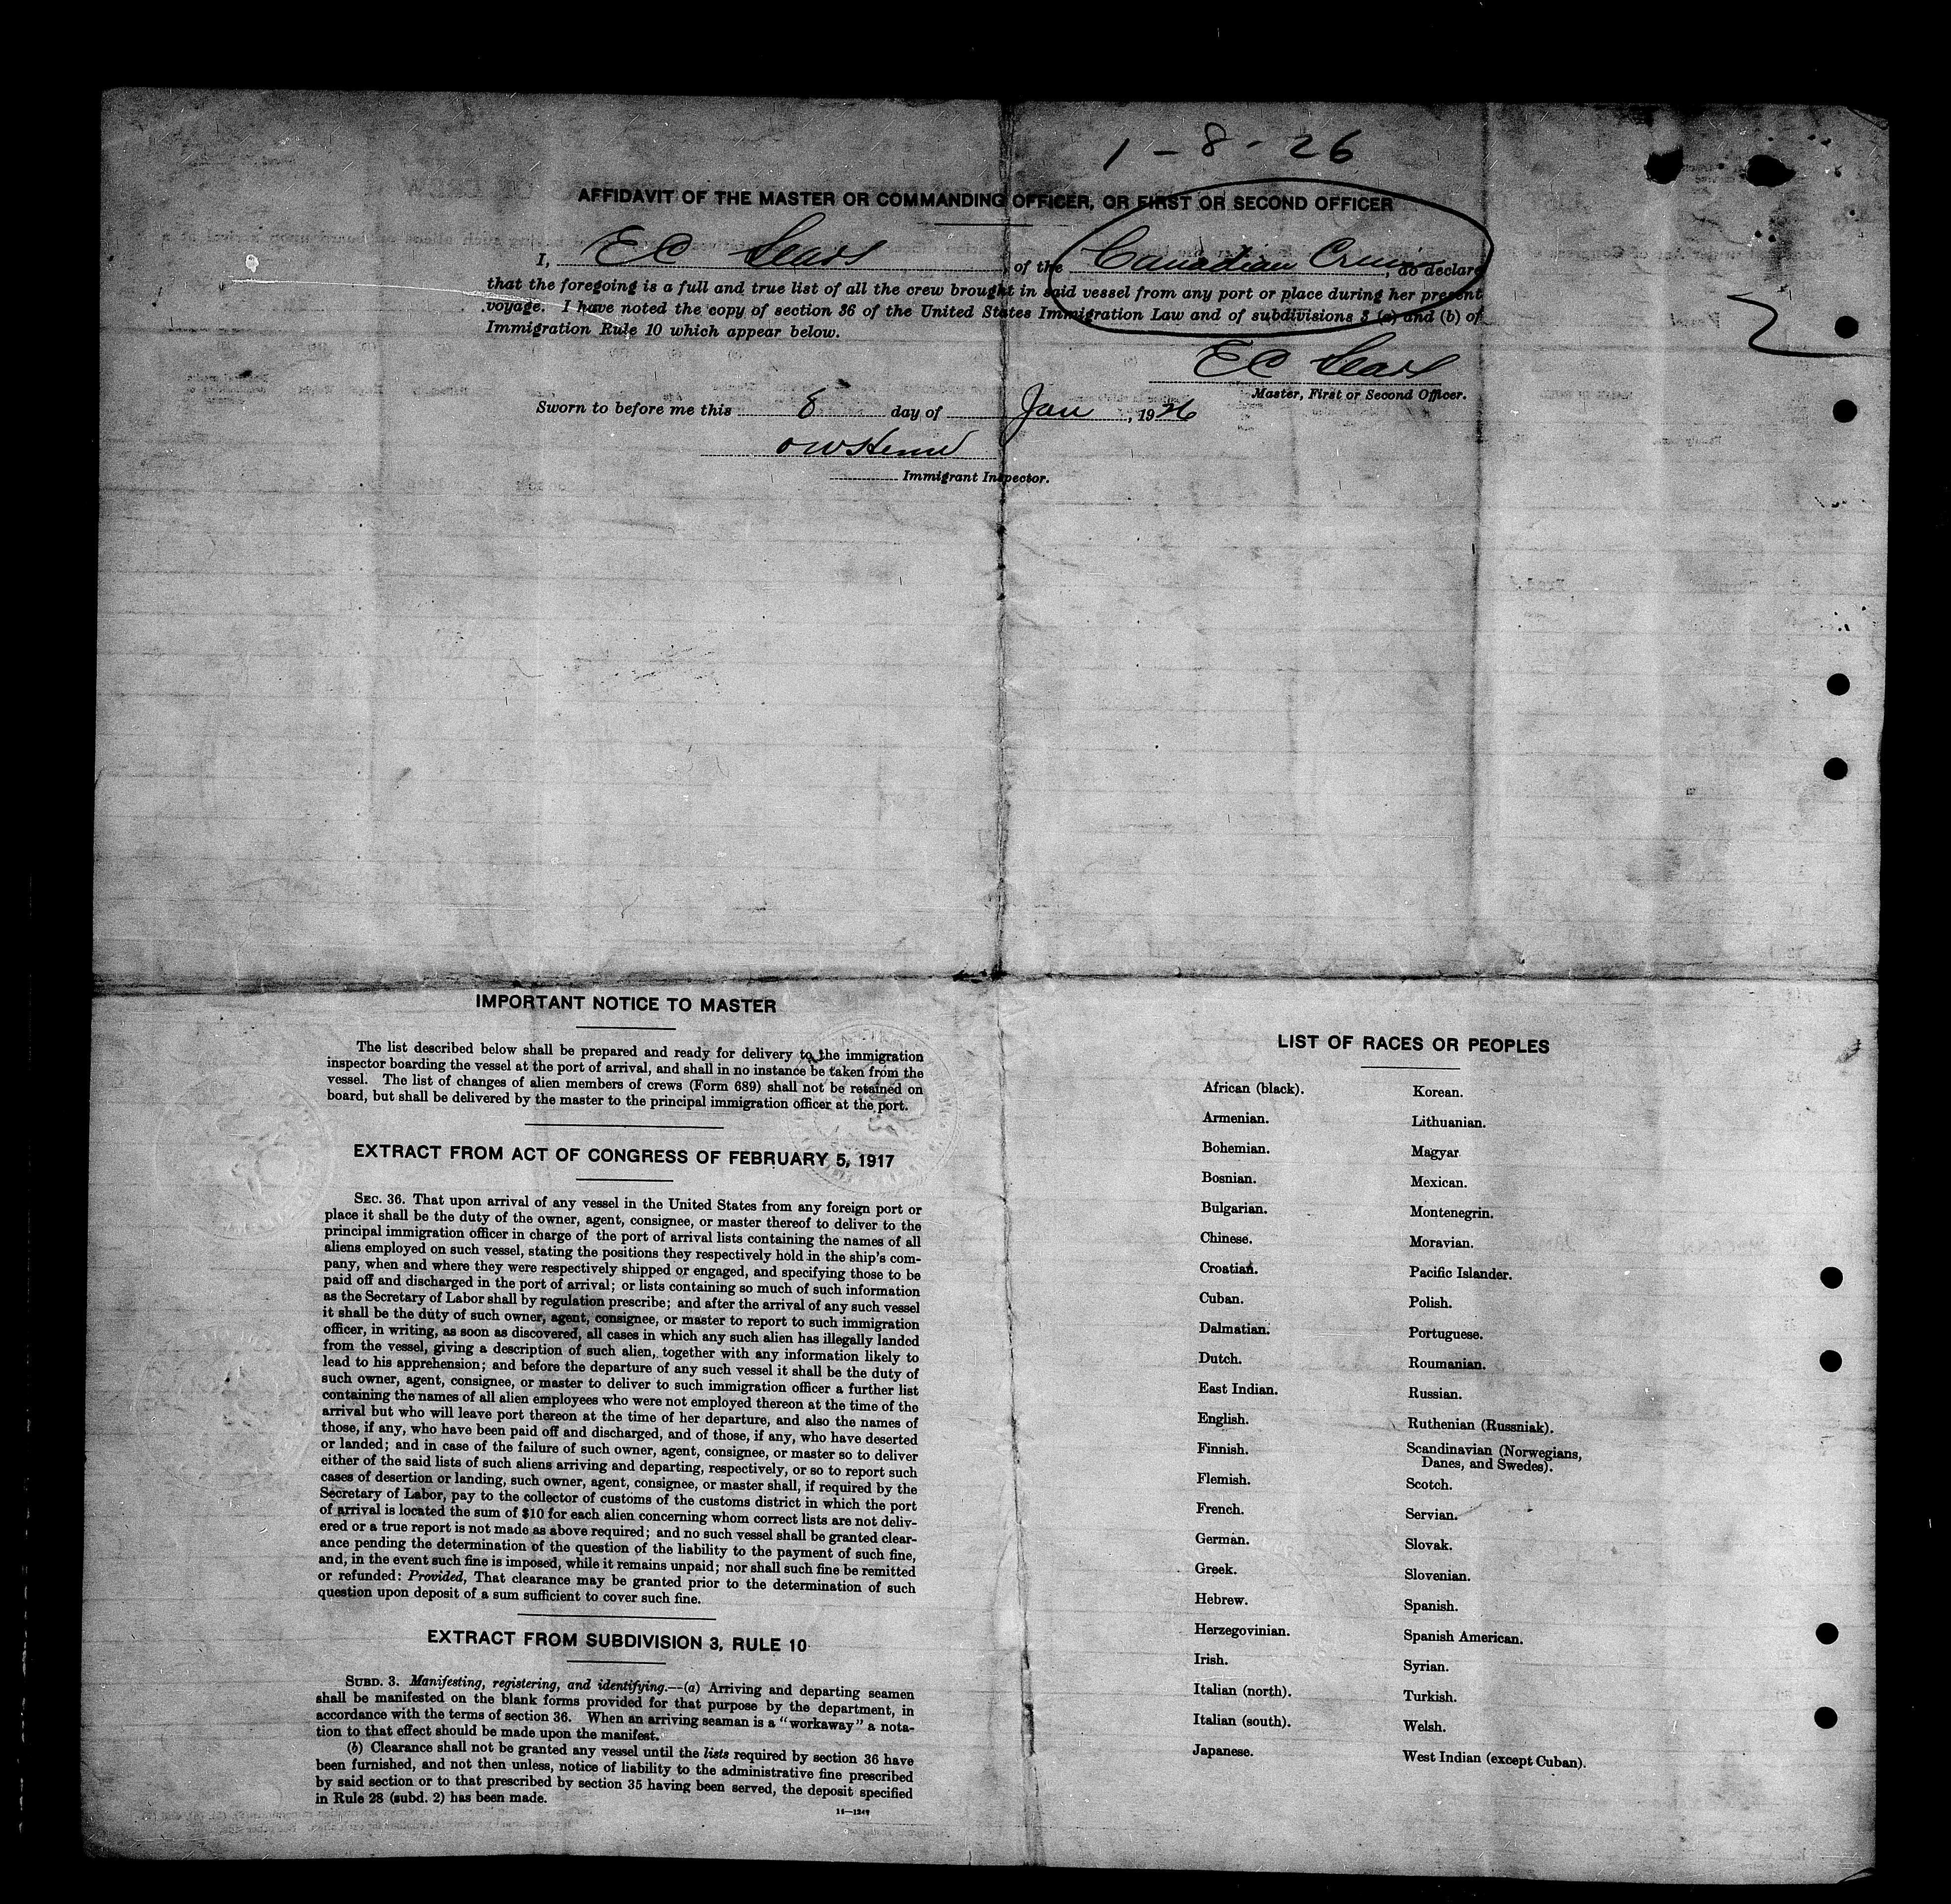 1-8-26
AFFIDAVIT OF THE MASTER OR COMMANDING OFFICER, OR FIRST OR SECOND OFFICER
I, E C Sears of the Canadian, do declare
that the foregoing is a full and true list of all the crew brought in said vessel from any port or place during her present
voyage. I have noted the copy of section 36 of the United States Immigration Law and of subdivisions 3 (a) and (b) of
Immigration Rule 10 which appear below.
E C Sears
Master, First or Second Officer.
Sworn to before me this 8 day of Jan, 1926
O W
Immigrant Inspector.
IMPORTANT NOTICE TO MASTER
The list described below shall be prepared and ready for delivery to the immigration
inspector boarding the vessel at the port of arrival, and shall in no instance be taken from the
vessel. The list of changes of alien members of crews (Form 689) shall not be retained on
board, but shall be delivered by the master to the principal immigration officer at the port.
EXTRACT FROM ACT OF CONGRESS OF FEBRUARY 5, 1917
SEC. 36. That upon arrival of any vessel in the United States from any foreign port or
place it shall be the duty of the owner, agent, consignee, or master thereof to deliver to the
principal immigration officer in charge of the port of arrival lists containing the names of all
aliens employed on such vessel, stating the positions they respectively hold in the ship's com-
pany, when and where they were respectively shipped or engaged, and specifying those to be
paid off and discharged in the port of arrival; or lists containing so much of such information
as the Secretary of Labor shall by regulation prescribe; and after the arrival of any such vessel
it shall be the duty of such owner, agent, consignee, or master to report to such immigration
officer, in writing, as soon as discovered, all cases in which any such alien has illegally landed
from the vessel, giving a description of such alien, together with any information likely to
lead to his apprehension; and before the departure of any such vessel it shall be the duty of
such owner, agent, consignee, or master to deliver to such immigration officer a further list
containing the names of all alien employees who were not employed thereon at the time of the
arrival but who will leave port thereon at the time of her departure, and also the names of
those, if any, who have been paid off and discharged, and of those, if any, who have deserted
or landed; and in case of the failure of such owner, agent, consignee, or master so to deliver
either of the said lists of such aliens arriving and departing, respectively, or so to report such
cases of desertion or landing, such owner, agent, consignee, or master shall, if required by the
Secretary of Labor, pay to the collector of customs of the customs district in which the port
of arrival is located the sum of $10 for each alien concerning whom correct lists are not deliv-
ered or a true report is not made as above required; and no such vessel shall be granted clear-
ance pending the determination of the question of the liability to the payment of such fine,
and, in the event such fine is imposed, while it remains unpaid; nor shall such fine be remitted
or refunded: Provided, That clearance may be granted prior to the determination of such
question upon deposit of a sum sufficient to cover such fine.
EXTRACT FROM SUBDIVISION 3, RULE 10
SUBD. 3. Manifesting, registering, and identifying.—(a) Arriving and departing seamen
shall be manifested on the blank forms provided for that purpose by the department, in
accordance with the terms of section 36. When an arriving seaman is a "workaway" a nota-
tion to that effect should be made upon the manifest.
(b) Clearance shall not be granted any vessel until the lists required by section 36 have
been furnished, and not then unless, notice of liability to the administrative fine prescribed
by said section or to that prescribed by section 35 having been served, the deposit specified
in Rule 28 (subd. 2) has been made.
LIST OF RACES OR PEOPLES
African (black).
Armenian.
Bohemian.
Bosnian.
Bulgarian.
Chinese.
Croatian.
Cuban.
Dalmatian.
Dutch.
East Indian.
English.
Finnish.
Flemish.
French.
German.
Greek.
Hebrew.
Herzegovinian.
Irish.
Italian (north).
Italian (south).
Japanese.
Korean.
Lithuanian.
Magyar
Mexican.
Montenegrin.
Moravian.
Pacific Islander.
Polish.
Portuguese.
Roumanian.
Russian.
Ruthenian (Russniak).
Scandinavian (Norwegians,
Danes, and Swedes).
Scotch.
Servian.
Slovak.
Slovenian.
Spanish.
Spanish American.
Syrian.
Turkish.
Welsh.
West Indian (except Cuban).